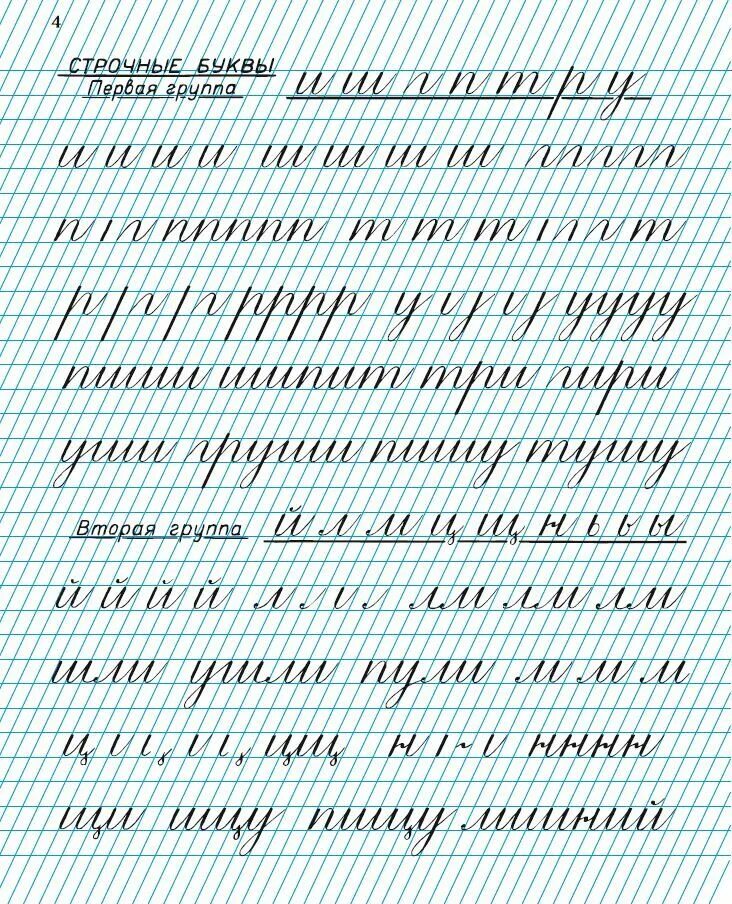 4
СТРОЧНЫЕ БУКВЫ
Первая группа
и ш г п т р у
и и и и ш ш ш ш ш
п г п п п п п т т т т
р г г р р р р у у у у у
пиши шипит три гири
уши груши пишу тушу
Вторая группа
й л м ц щ н ь ы
й й й й л
шли ушли пули м м м
ц ц щ н н н н н
щи ищу пищу лишний